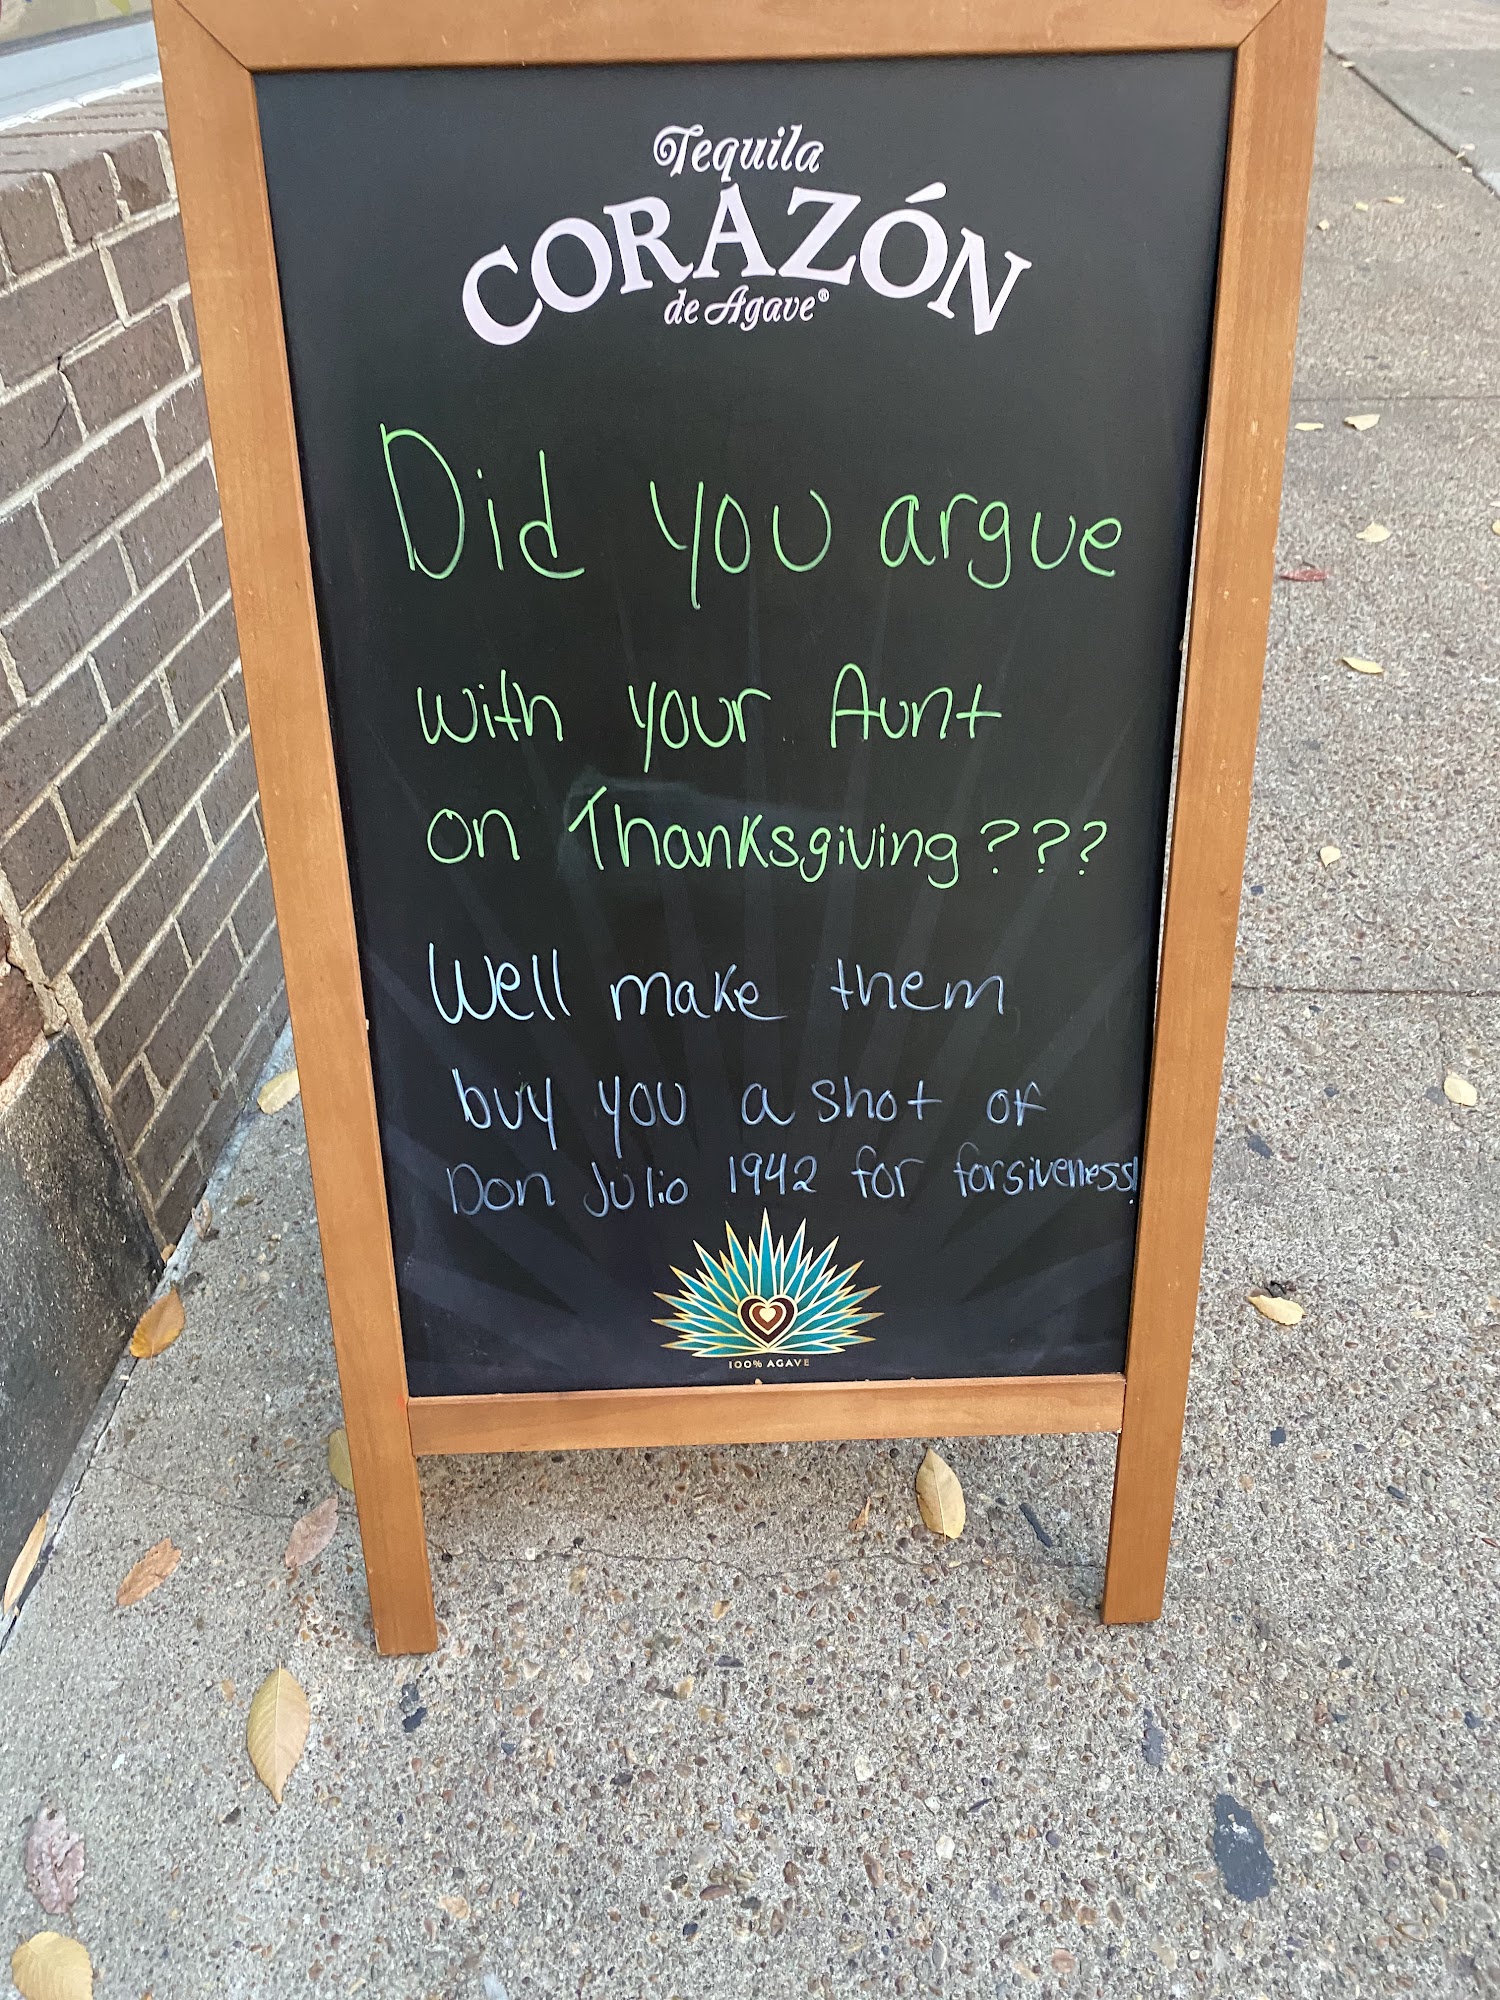 Tequila
CORAZÓN
de Agave®
Did you argue
with your Aunt
on Thanksgiving???
Well make them
buy you a shot of
Don Julio 1942 for forsiveness!
100% AGAVE